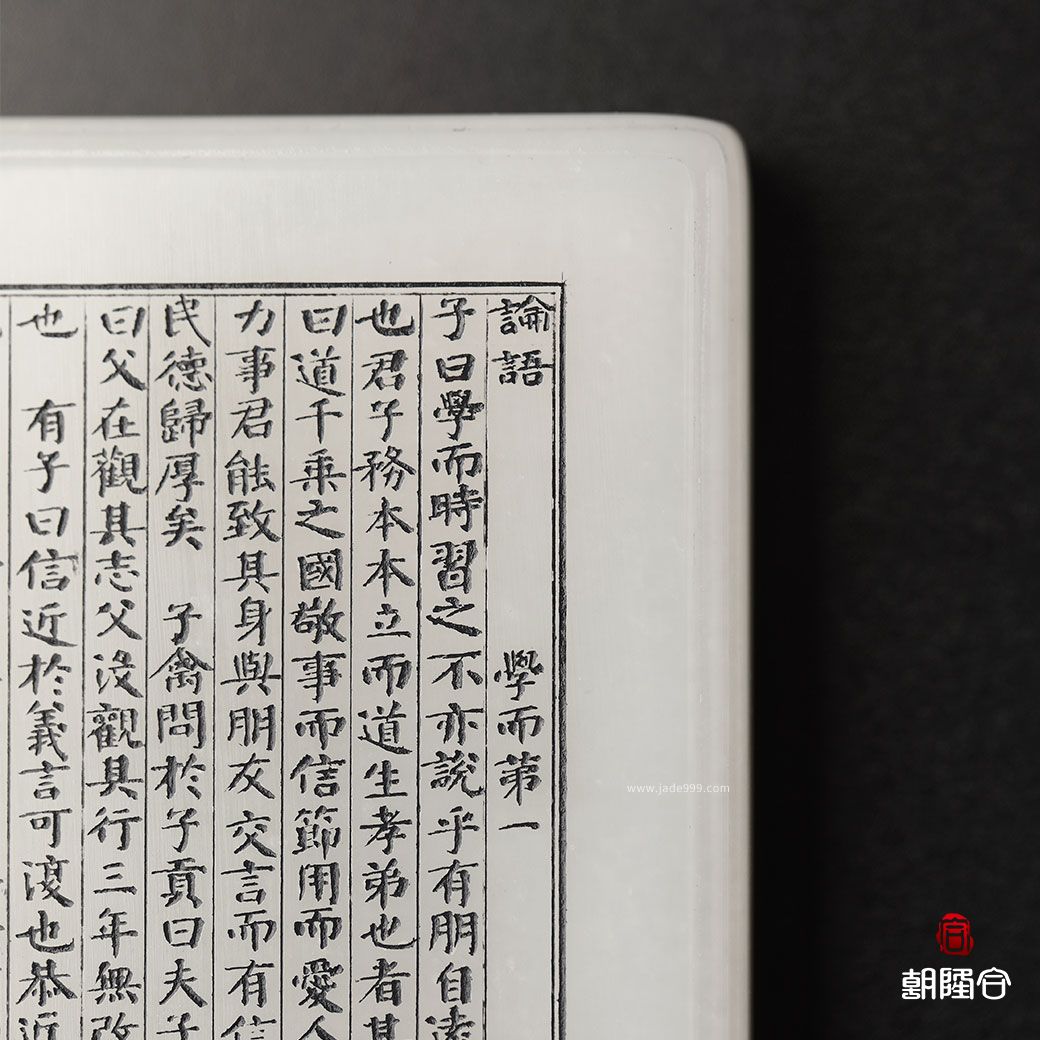 論語 學而第一
子曰學而時習之不亦說乎有朋自遠
也君子務本本立而道生孝弟也者其
曰道千乘之國敬事而信節用而愛人
力事君能致其身與朋友交言而有信
民德歸厚矣 子禽問於子貢曰夫子
曰父在觀其志父沒觀其行三年無改
也 有子曰信近於義言可復也恭近
www.jade999.com
朝隆合